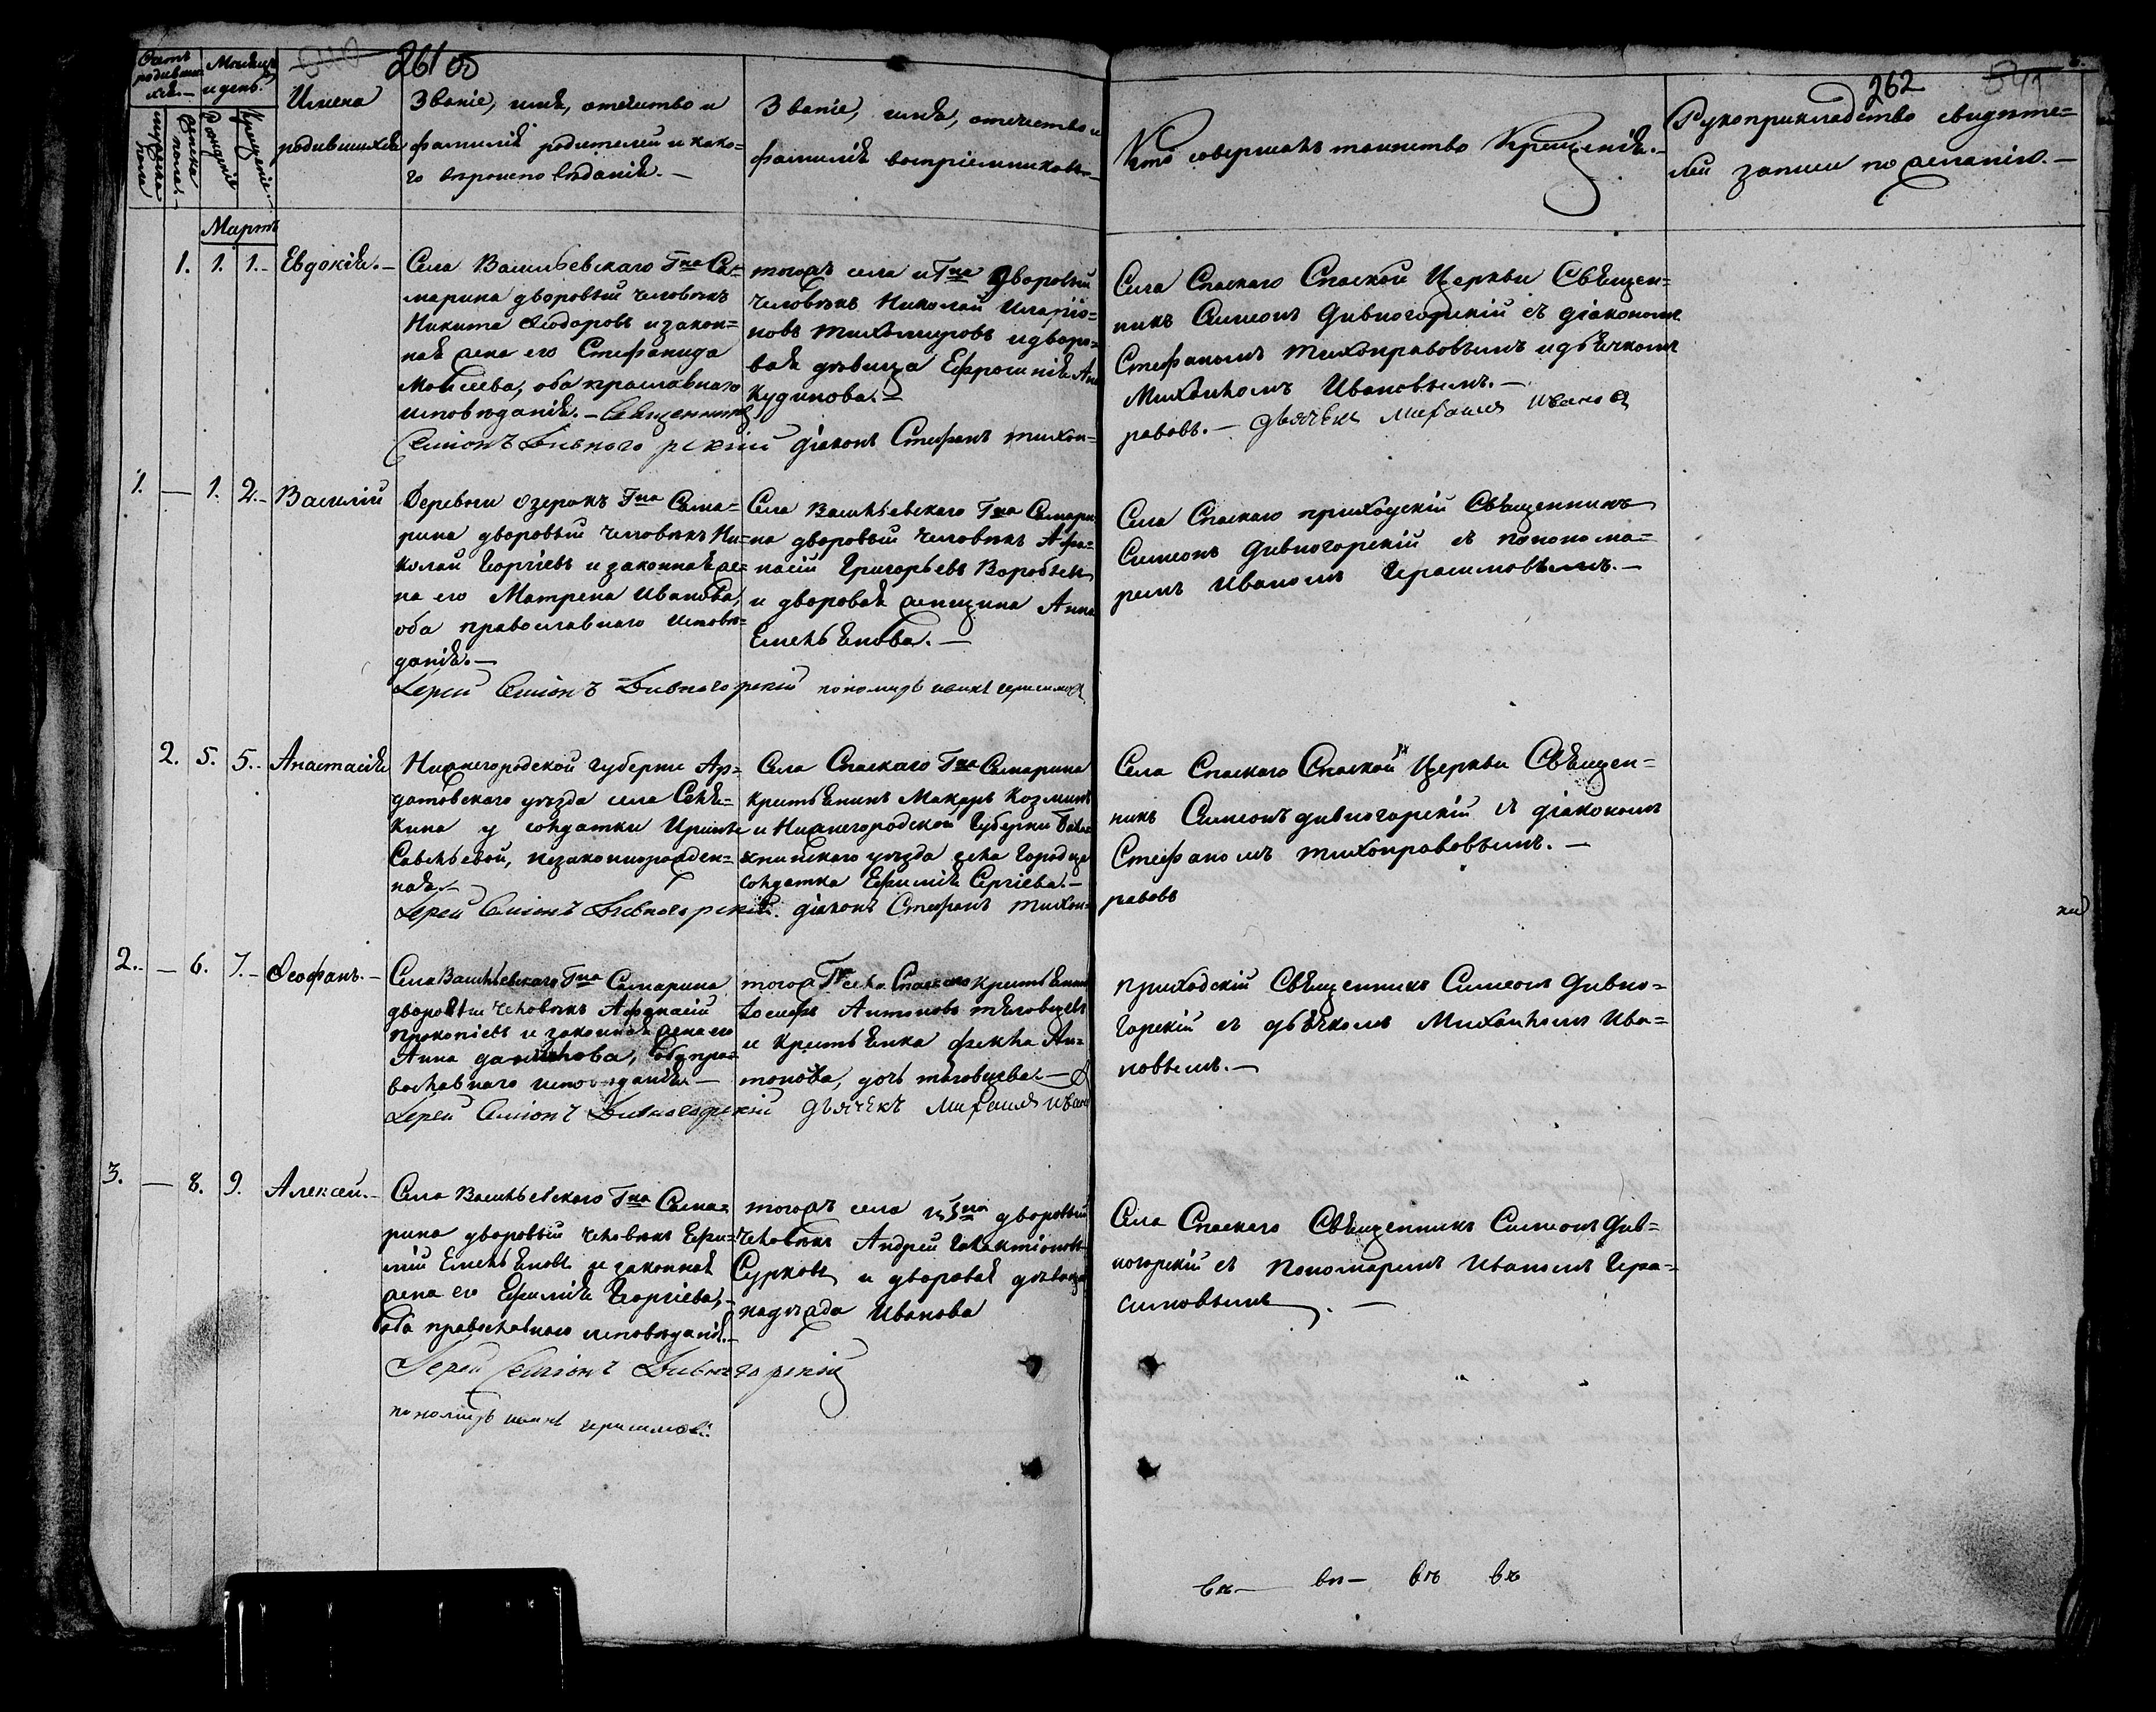 261 об
262
541
Счетъ родившихся.
Месяцъ и день.
мужеска пола
женска пола.
рожденія
крещенія.
Имена
родившихся
Званіе, имя, отечество и
фамилія родителей и како-
го вѣроисповѣданія. —
Званіе, имя, отечество и
фамилія воспріемниковъ. —
Кто совершалъ таинство Крещенія. —
Рукоприкладство свидѣте=
лей записи по желанію. —
Мартъ
1. 1. 1. Евдокія. —
Села Васильевскаго Гна Са=
марина дворовый человѣкъ
Никита Ѳеодоровъ и закон=
ная жена его Стефанида
Моисеева, оба праславнаго
исповѣданія. — Священникъ
Симіонъ Дивногорскій діаконъ Стефанъ Тихон=
тогожъ села и Гна дворовый
человѣкъ Николай Иларіо=
новъ Тихомировъ и дворо=
вая дѣвица Ефросинія Ан
кудинова. —
Села Спаскаго Спаской Церкви Священ=
никъ Симеонъ Дивногорскій съ діакономъ
Стефаномъ Тихонравовымъ и дьячкомъ
Михаиломъ Ивановымъ. —
равовъ. — Дьячекъ Михаилъ Ивановъ
1. — 1. 2. Василій
Деревни Озерокъ Гна Сама=
рина дворовый человѣкъ Ни=
колай Георгіевъ и законная же=
на его Матрена Иванова,
оба православнаго исповѣ=
данія. —
Іерей Симіонъ Дивногорскій пономарь Иванъ Герасимовъ
Села Васильевскаго Гна Самари
на дворовый человѣкъ Афа=
насій Григорьевъ Воробьевъ
и дворовая женщина Анна
Емельянова. —
Села Спаскаго приходскій Священникъ
Симеонъ Дивногорскій съ попонома=
ремъ Иваномъ Герасимовымъ. —
2. 5. 5. Анастасія
Нижегородской губерніи Ар=
датовскаго уѣзда села
у солдатки Ирины
Савельевой, незаконнорожден=
ная. —
Іерей Симіонъ Дивногорскій. діаконъ Стефанъ Тихон=
Села Спаскаго Гна Самарина
крестьянинъ Макаръ Козминъ
и Нижегородской Губерніи Бала=
хнинскаго уѣзда села Городца
солдатка Ефимія Сергіева. —
Села Спаскаго Спаской Церкви Священ=
никъ Симеонъ Дивногорскій съ діакономъ
Стефаномъ Тихонравовымъ. —
равовъ
2. — 6. 7. Ѳеофанъ. —
Села Васильевскаго Гна Самарина
дворовый человѣкъ Афанасій
Прокопіевъ и законная жена его
Анна Данилова, оба пра=
вославнаго исповѣданія —
Іерей Симіонъ Дивногорскій Дьячекъ Михаилъ Иванов
тогож Гна села Спаскаго крестьянинъ
Іосифъ Антоновъ
и крестьянка Фекла Ан=
тонова, дочь
приходскій Священникъ Симеонъ Дивно=
горскій съ дьячкомъ Михаиломъ Ива=
новымъ. —
3. — 8. 9. Алексей. —
Села Васильевскаго Гна Сама=
рина дворовый человѣкъ Ефи=
мій Емельяновъ и законная
жена его Ефимія Георгіева, —
оба православнаго исповѣданія. —
Іерей Симіонъ Дивногорскій
пономарь Иванъ Герасимовъ.
тогожъ села и Гна дворовый
человѣкъ Андрей Галактіоновъ
Сурковъ и дворовая дѣвица
Надѣжда Иванова
Села Спаскаго Священникъ Симеонъ Див=
ногорскій съ Пономаремъ Иваномъ Гера=
симовымъ. —